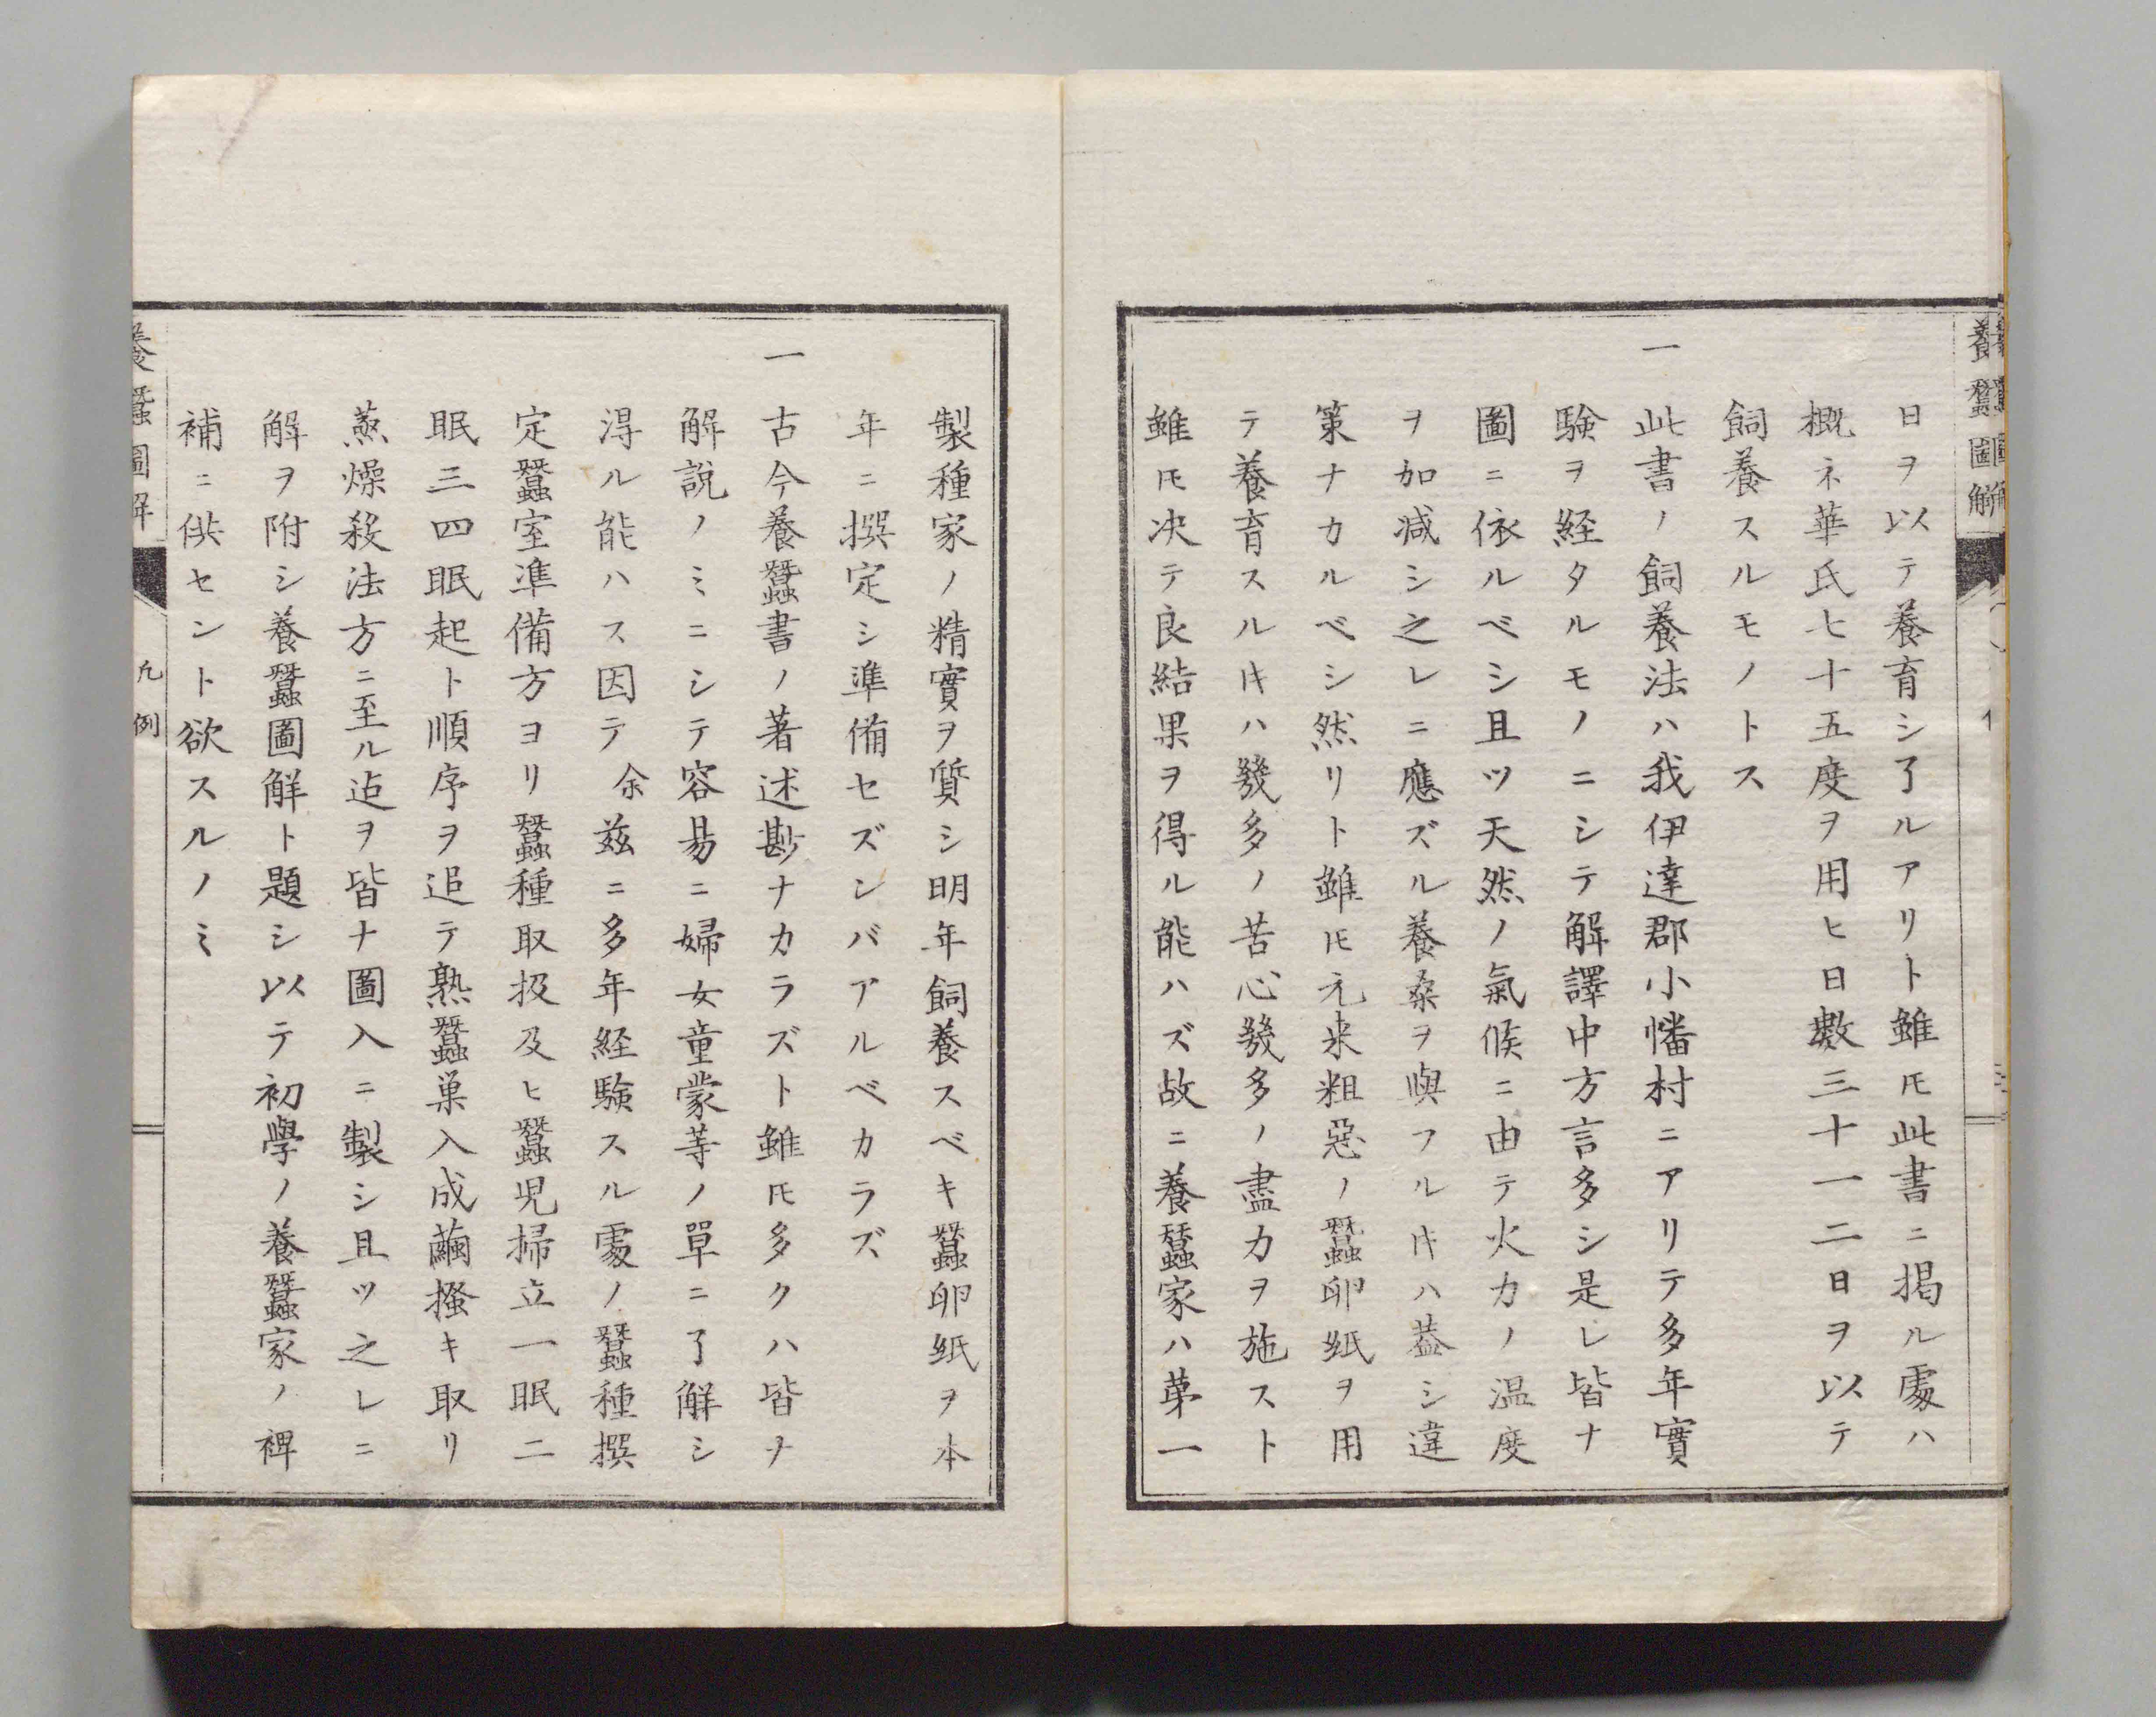 養蠶圖解
日ヲ以テ養育シ了ルアリト雖𪜈此書ニ掲ル處ハ
概ネ華氏七十五度ヲ用ヒ日數三十一二日ヲ以テ
飼養スルモノトス
一 此書ノ飼養法ハ我伊達郡小幡村ニアリテ多年實
驗ヲ経タルモノニシテ解譯中方言多シ是レ皆ナ
圖ニ依ルベシ且ツ天然ノ氣候ニ由テ火力ノ温度
ヲ加減シ之レニ應ズル養桑ヲ與フル𪜀ハ葢シ違
策ナカルベシ然リト雖𪜈元来粗惡ノ蠶卵紙ヲ用
テ養育スル𪜀ハ幾多ノ苦心幾多ノ盡力ヲ施スト
雖𪜈决テ良結果ヲ得ル能ハズ故ニ養蠶家ハ苐一
製種家ノ精實ヲ質シ明年飼養スベキ蠶卵紙ヲ本
年ニ撰定シ準備セズンバアルベカラズ
一 古今養蠶書ノ著述尠ナカラズト雖𪜈多クハ皆ナ
解説ノミニシテ容易ニ婦女童蒙等ノ單ニ了解シ
淂ル能ハス因テ余茲ニ多年経驗スル處ノ蠶種撰
定蠶室準備方ヨリ蠶種取扱及ヒ蠶児掃立一眠二
眠三四眠起ト順序ヲ追テ熟蠶巣入成繭搔キ取リ
蒸燥殺法方ニ至ル迠ヲ皆ナ圖入ニ製シ且ツ之レニ
解ヲ附シ養蠶圖解ト題シ以テ初學ノ養蠶家ノ裨
補ニ供セント欲スルノミ
養蠶圖解
凡例